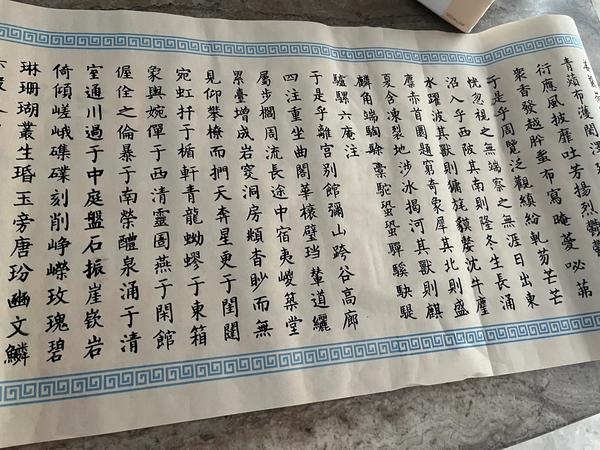 青薠布濩閎澤
衍應風披靡吐芳揚烈鬱
衆香發越肸蠁布寫晻薆咇茀
于是乎周覽泛觀縝紛軋芴芒芒
恍忽視之無端察之無涯日出東
沼入乎西陂其南則隆冬生長涌
水躍波其獸則㺎旄貘犛沈牛麈
麋赤首圜題窮奇象犀其北則盛
夏含凍裂地涉冰揭河其獸則麒
麟角端騊駼橐駝蛩蛩驒騱駃騠
驢騾六庵注
于是乎離宮別館彌山跨谷高廊
四注重坐曲閣華榱璧珰輦道纚
屬步櫩周流長途中宿夷嵕築堂
累臺增成岩窔洞房頫杳眇而無
見仰攀橑而捫天奔星更于閨闥
宛虹扦于楯軒青龍蚴蟉于東箱
象輿婉僤于西清靈圄燕于閑館
偓佺之倫暴于南榮醴泉涌于清
室通川過于中庭盤石振崖嶔岩
倚傾嵯峨磼礏刻削崢嶸玫瑰碧
琳珊瑚叢生瑉玉旁唐玢豳文鱗